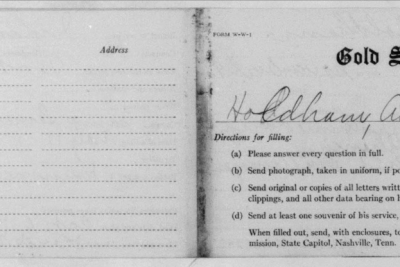 Address
FORM W-W-1
Gold S
Holdham, A
Directions for filling:
(a) Please answer every question in full.
(b) Send photograph, taken in uniform, if po
(c) Send original or copies of all letters writt
clippings, and all other data bearing on h
(d) Send at least one souvenir of his service,
When filled out, send, with enclosures, to
mission, State Capitol, Nashville, Tenn.